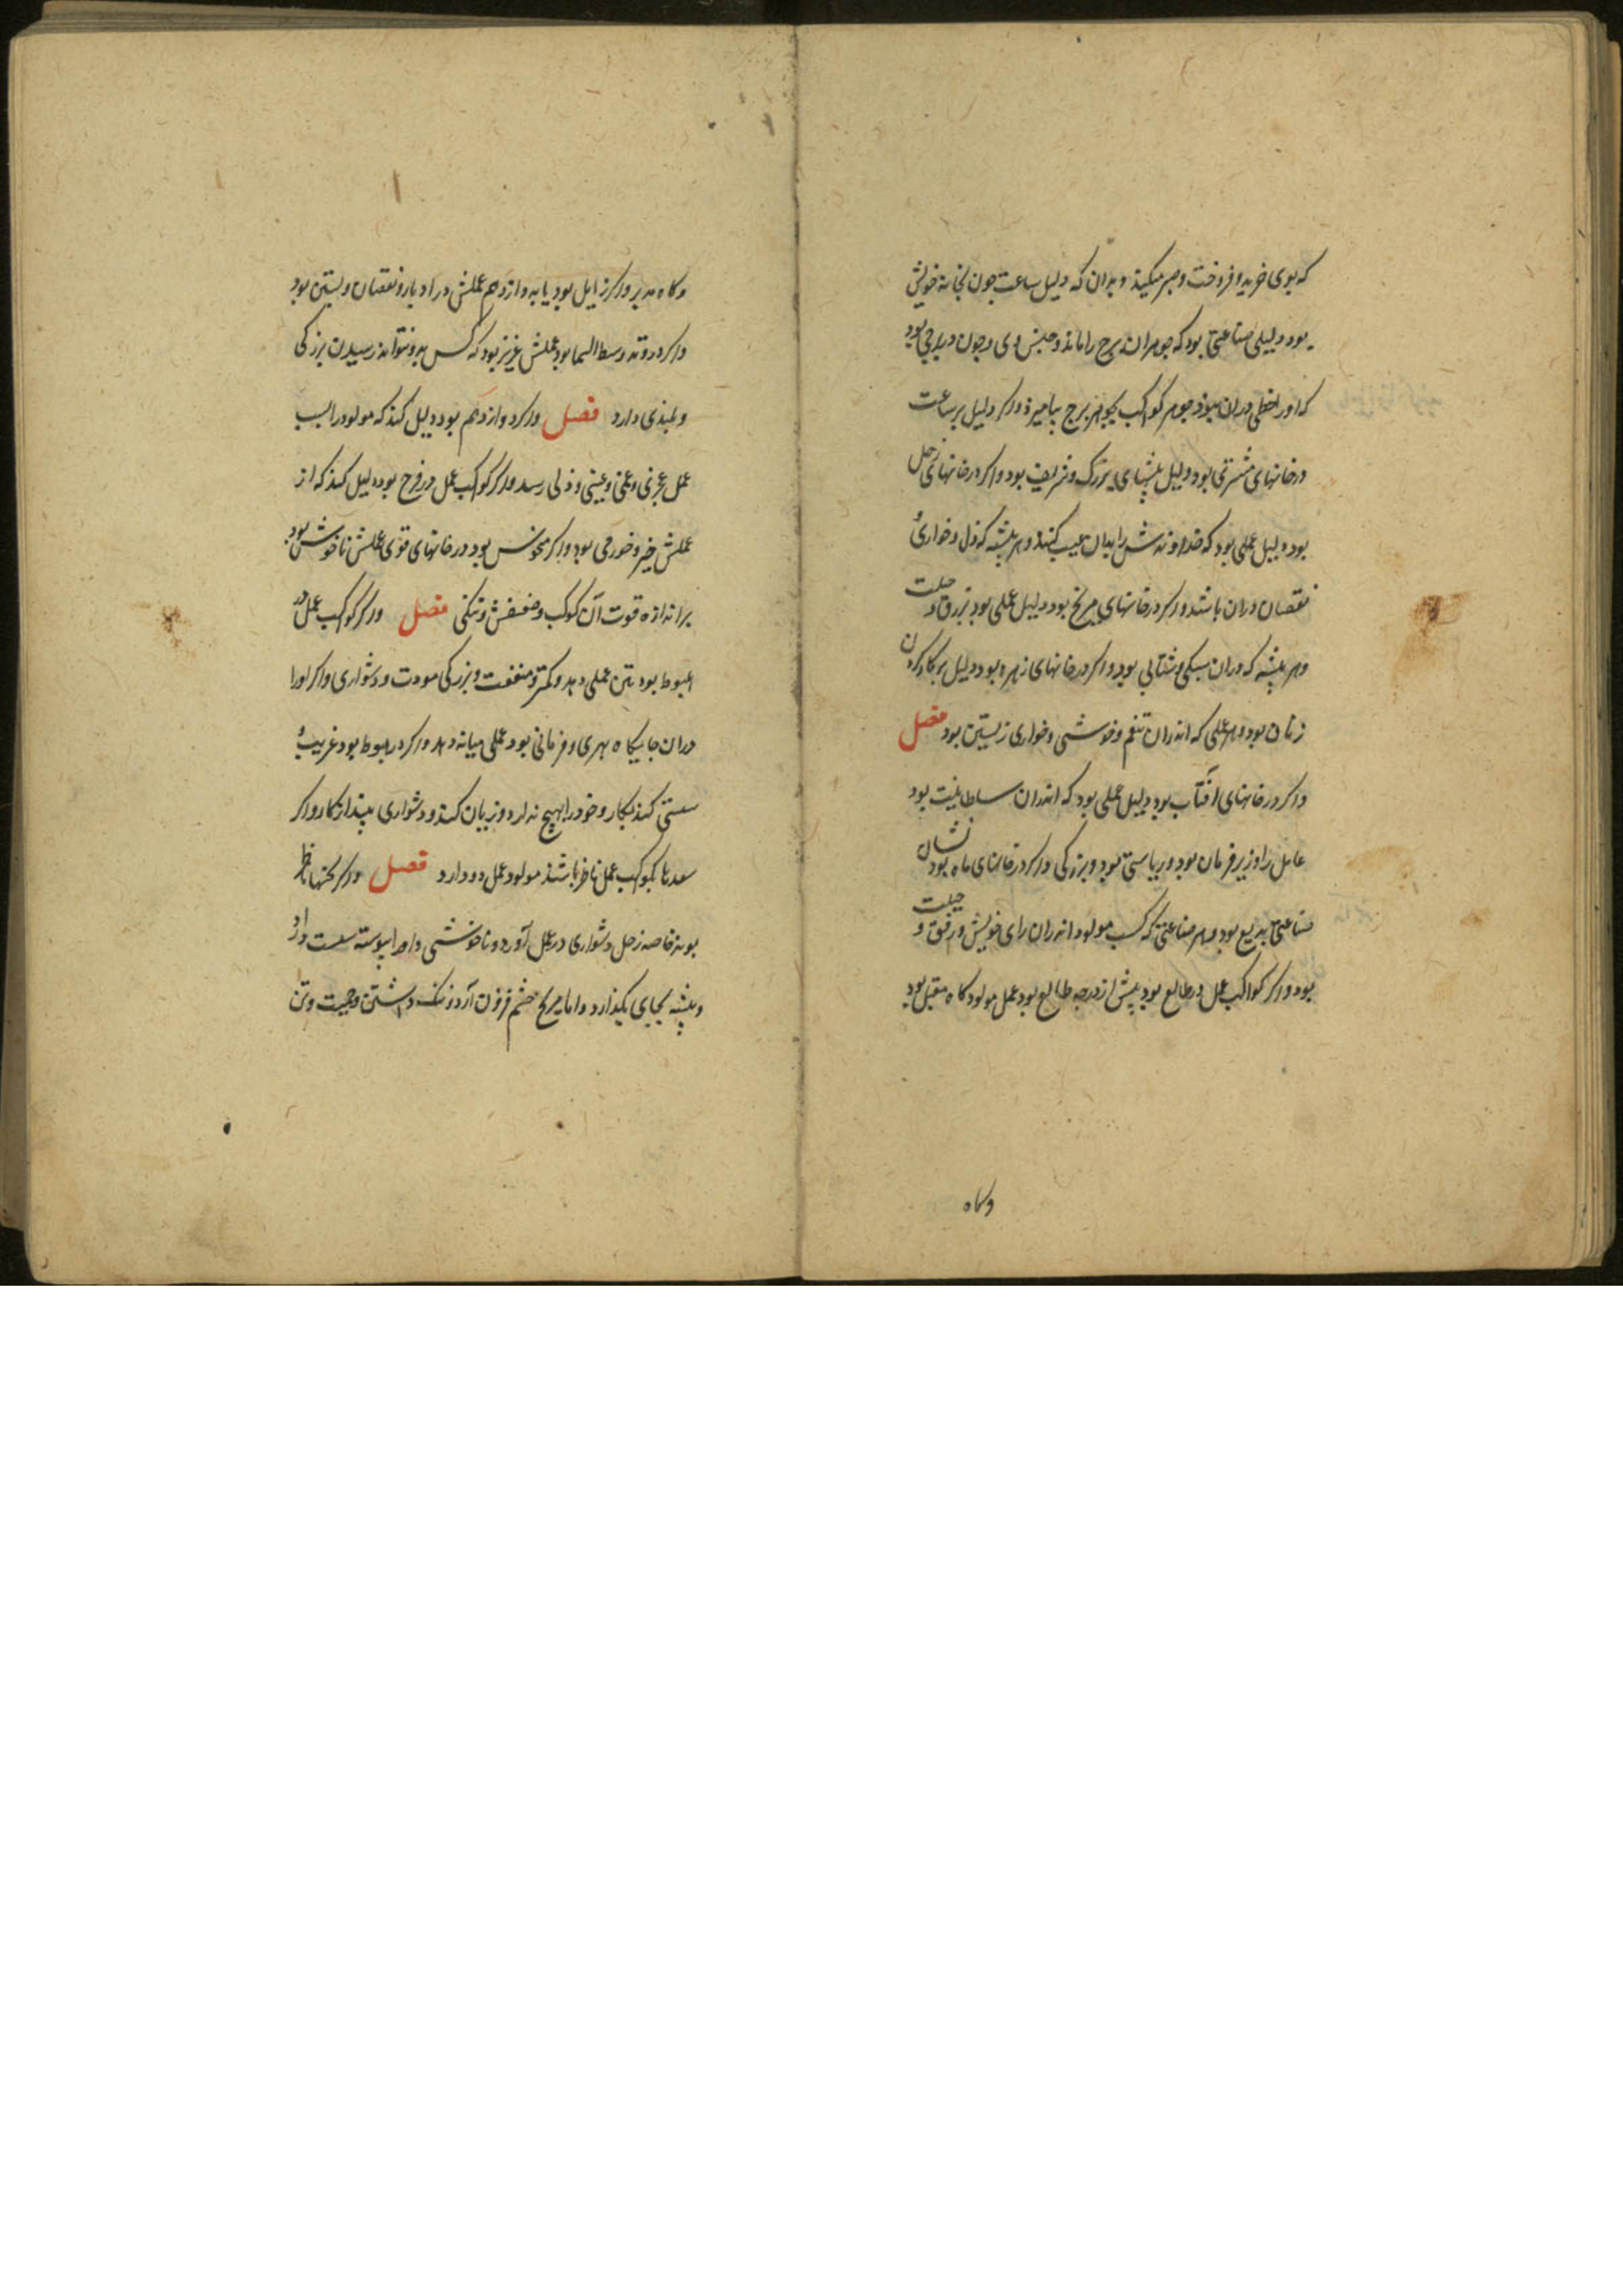 که بوی خرید و فروخت و صبر میکند و بدان که دلیل ساعت جون بخانۀ خویش
بود دلیلی صناعتی بود که جوهر ان برج را ماند و جنس وی و جون در برجی بود
که اورا حظی دران نبود جوهر کواکب بجوهر برج بیامیزد و اکر دلیل بر ساعت
در خانهای مشتری بود دلیل پیشهای بزرک و شریف بود و اکر در خانهای زحل
بود دلیل عملی بود که خداوندش را بدان عیب کنند و هر پیشه که ذل و خواری و
نقصان دران باشد و اکر در خانهای مریخ بود دلیل عملی بود بزرق و حیلت
و هر پیشه که دران سبکی و شتابی بود و اکر در خانهای زهره بود دلیل بر کار کردن
زنان بود و هر عملی که اندران تنعم و خوشی و خواری زیستن بود فصل
و اکر در خانهای افتاب بود دلیل عملی بود که اندران سلطانیت بود
عامل را و زیر فرمان بود و ریاستی بود و بزرکی و اکر در خانهای ماه بود نشان
صناعتی بدیع بود و هر صناعتی که کسب مولود اندران رای خویش و رفق و حیلت
بود و اکر کواکب عمل در طالع بود پیش از درجه طالع بود عمل مولود کاه مقبل بود
وکاه
وکاه مدبر و اکر زایل بود یا به دوازدهم عملش در ادبار و نقصان و پستی بود
و اکر در وتد وسط السما بود عملش عزیز بود که کس بدو نتواند رسیدن بزرکی
و بلندی دارد فصل و اکر دوازدهم بود دلیل کند که مولود را بسبب
عمل عجزی و غمی و عیبی و ذلی رسد و اکر کواکب عمل در فرح بود دلیل کند که از
عملش خیر و خورمی بود و اکر منحوس بود در خانهای قوی عملش ناخوش بود
براندازه قوت آن کوکب و ضعفش و نیکی فصل و اکر کواکب عمل در
هبوط بود بتن عملی دهد و کمتر منفعت و بزرکی مودت و دشواری و اکر اورا
دران جایکاه بهری و فرمانی بود عملی میانه دهد و اکر در هبوط بود غریب و
سستی کند بکار و خود را بهیچ ندارد و زیان کند و دشواری بیند از کار و اکر
سعدها بکوکب عمل ناظر باشند مولود عمل دو دارد فصل و اکر نحسها ناظر
بوند خاصه زحل دشواری در عمل آورد و ناخوشی و او را پیوسته سست دارد
و پیشه بجای بکذارد و اما مریخ خشم فزون آرد و ننک داشتن وجیت وتن